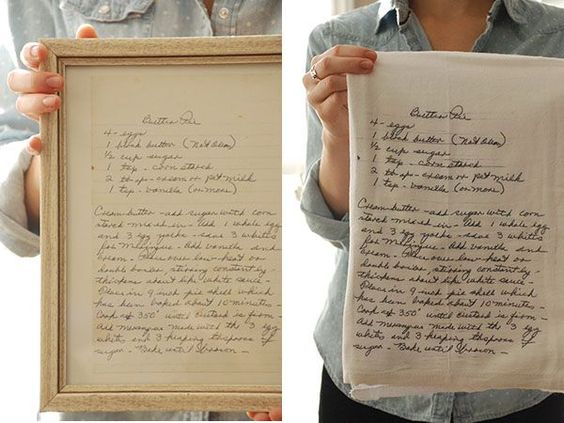 Butter Pie
4 - eggs
1 block butter (Not Oleo)
1/2 cup sugar
1 tsp - corn starch
2 tbsp - cream or pet milk
1 tsp - vanilla (or more)
Cream butter - add sugar with corn
starch mixed in - Add 1 whole egg
and 3 egg yolks - save 3 whites
for Meringue - Add vanilla and
cream - Place over low-heat or
double boiler, stirring constantly -
thickens about like white sauce -
Place in 9 inch pie shell which
has been baked about 10 minutes
Cook at 350° until custard is firm -
Add Meringue made with the 3 egg
whites and 3 heaping tbspoons of
sugar - Bake until brown -
Butter Pie
4 - eggs
1 block butter (Not Oleo)
1/2 cup sugar
1 tsp - corn starch
2 tbsp - cream or pet milk
1 tsp - vanilla (or more)
Cream butter - add sugar with corn
starch mixed in - Add 1 whole egg
and 3 egg yolks - save 3 whites
for Meringue - Add vanilla and
cream - Place over low-heat or
double boiler, stirring constantly -
thickens about like white sauce -
Place in 9 inch pie shell which
has been baked about 10 minutes
Cook at 350° until custard is firm -
Add Meringue made with the 3 egg
whites and 3 heaping tbspoons of
sugar - Bake until brown -